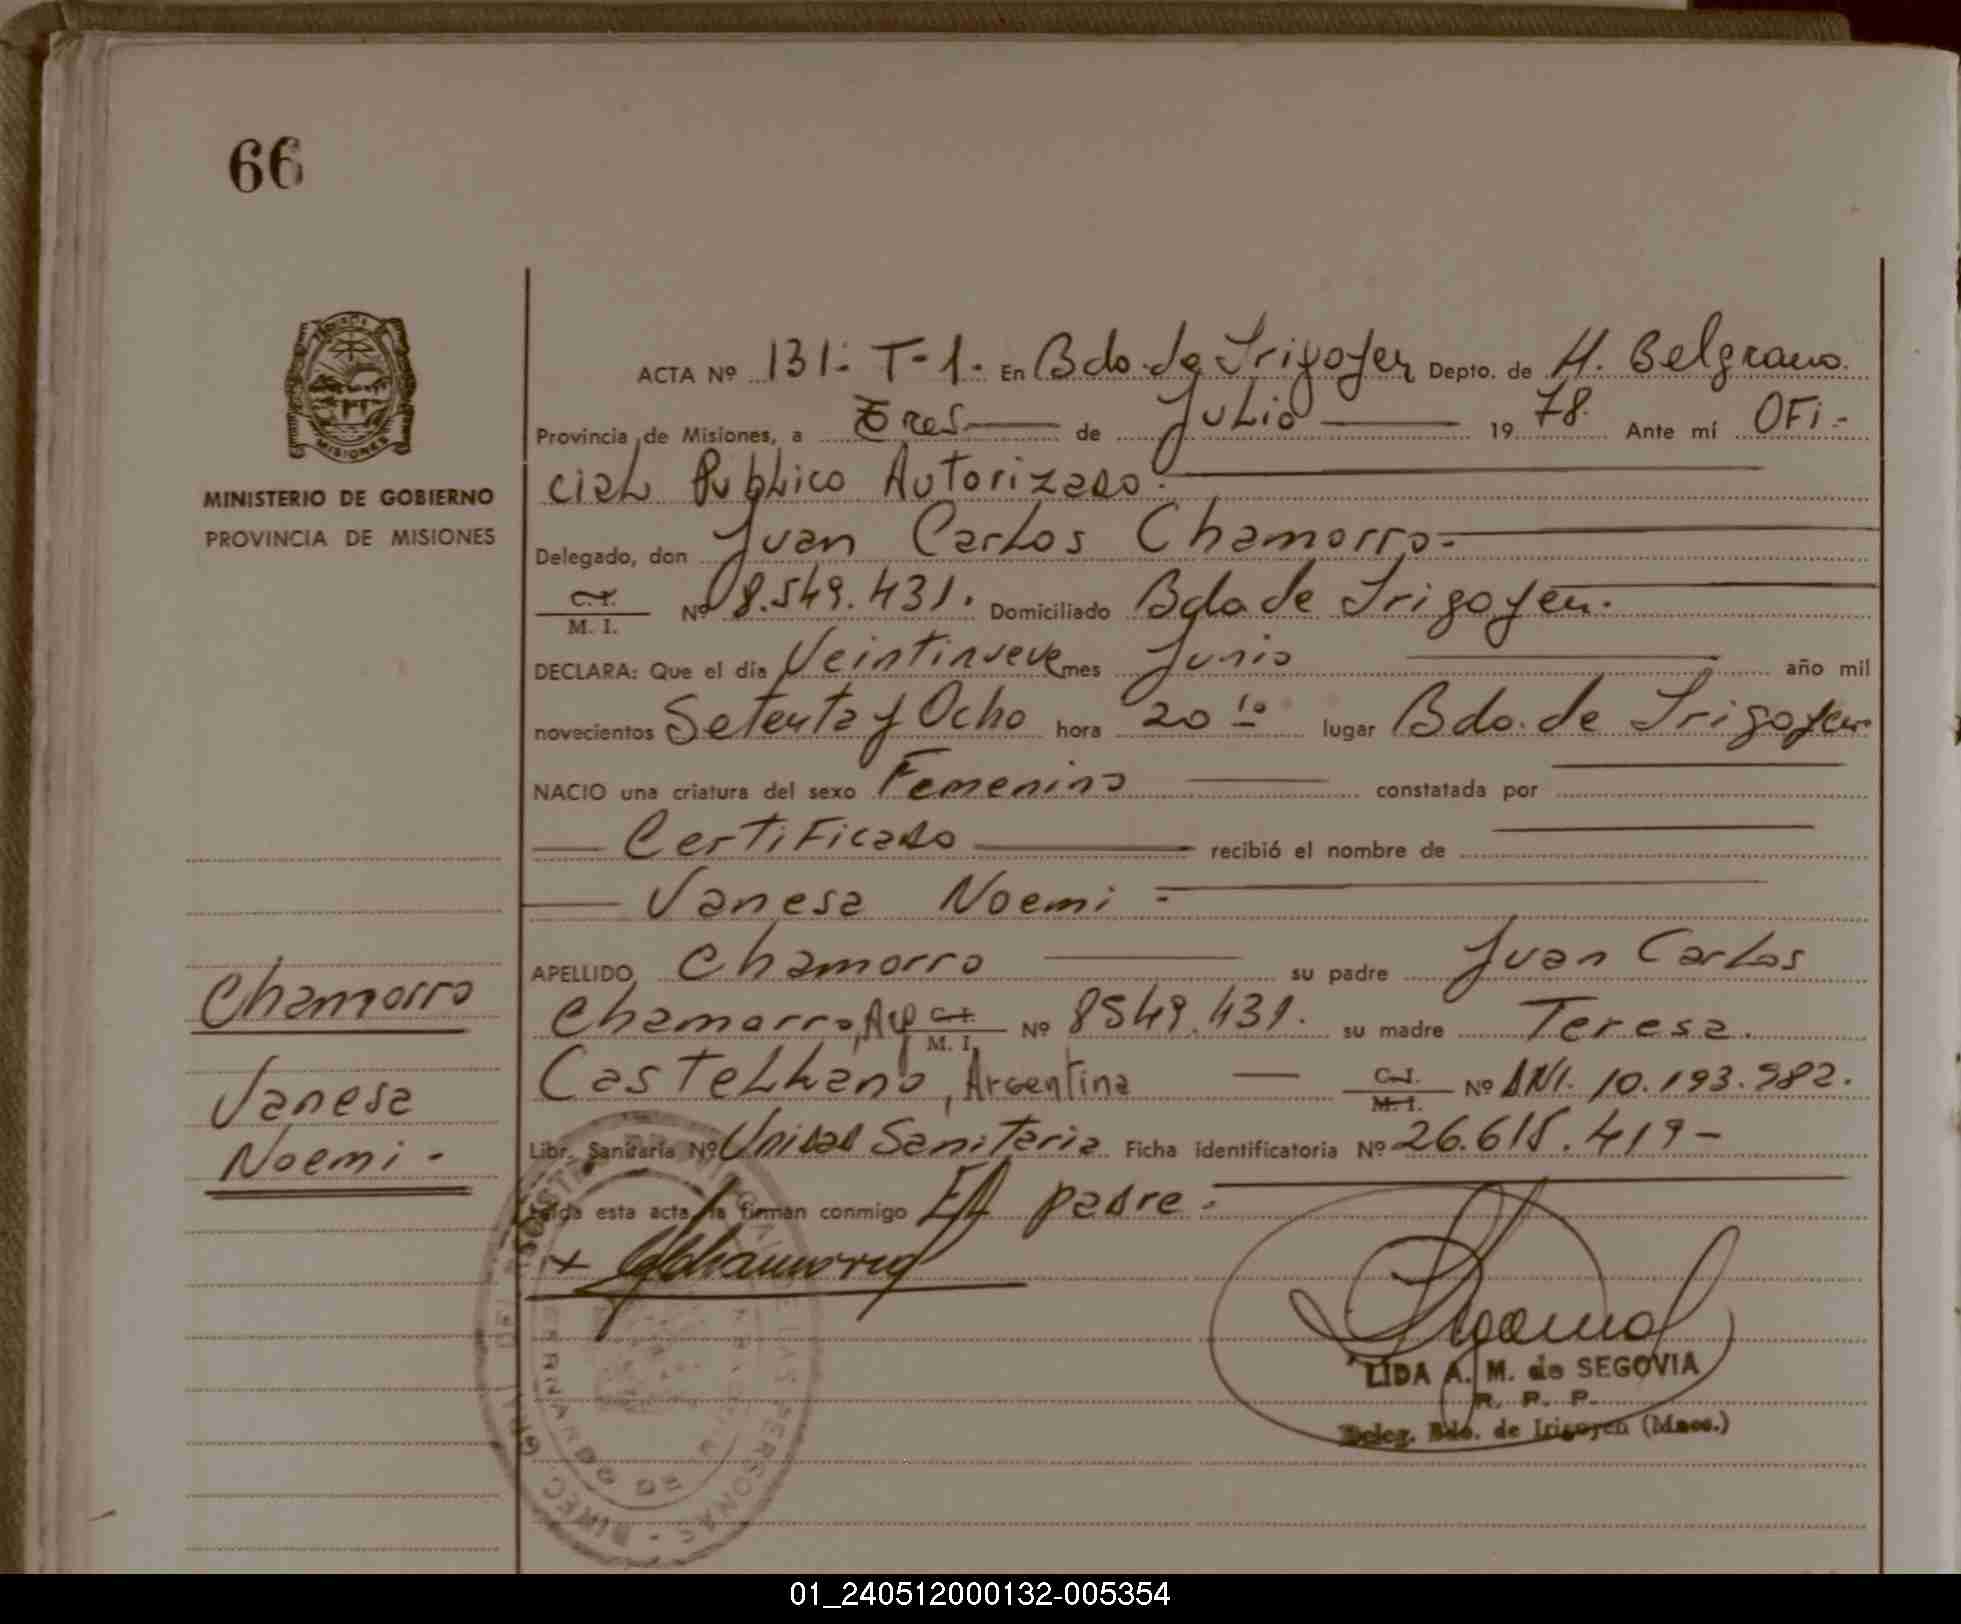 66
MISIONES
MINISTERIO DE GOBIERNO
PROVINCIA DE MISIONES
ACTA Nº 131. T-1. En Bdo. de Irigoyen Depto. de M. Belgrano.
Provincia de Misiones, a Tres de Julio 1978. Ante mí OFi-
ciaL PubLico Autorizado.
Delegado, don Juan CarLos Chamorro.
C.I. / M. I. Nº 8.549.431. Domiciliado Bdo de Irigoyen.
DECLARA: Que el día Veintinueve mes Junio año mil
novecientos Setenta y Ocho hora 20 10 lugar Bdo. de Irigoyen
NACIO una criatura del sexo Femenino constatada por
CertiFicado recibió el nombre de
Vanesa Noemi.
APELLIDO Chamorro su padre Juan CarLos
Chamorro, Arg C.I. / M. I. Nº 8549.431. su madre Teresa.
CasteLLano, Argentina C.I. / M. I. Nº DNI. 10.193.982.
Libr. Sanitaria Nº Unidad Sanitaria Ficha identificatoria Nº 26.615.419-
Leída esta acta, la firman conmigo EL padre.
+ Chamorro
LIDA A. M. de SEGOVIA
R. P. P.
Deleg. Bdo. de Irigoyen (Mnes.)
Chamorro
Vanesa
Noemi.
01_240512000132-005354